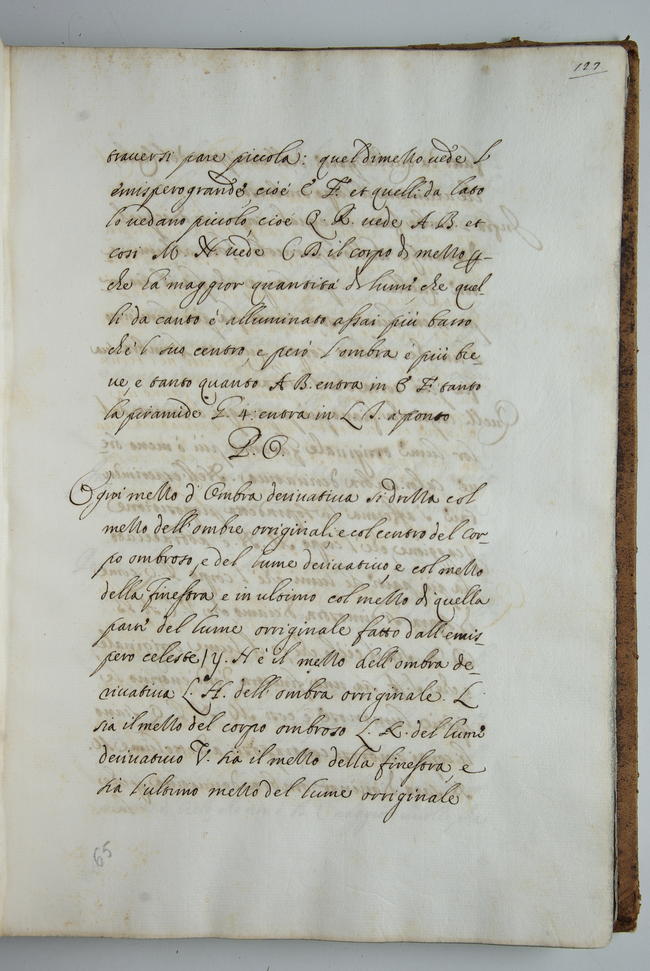 127
traversi pare piccola: quel di mello vede l
emispero grande, cioè E F. et quelli da lato
lo vedano piccolo, cioè Q. R. vede A B. et
cosi M N. vede C D il corpo di mello
che hà maggior quantità di lumi che quel-
li da canto è alluminato assai più basso
ch'è l suo centro, e però l'ombra è più bre-
ve, e tanto quanto A B. entra in E F. tanto
la piramide G. 4: entra in L I. aponto
Ogni mello d'Ombra derivativa si drilla col
mello dell'ombre orriginali e col centro del cor-
po ombroso, e del lume derivativo, e col mello
della finestra e in ultimo col mello di quella
parte del lume orriginale fatto dall'emis-
pero celeste / Y. H è il mello dell'ombra de-
rivativa L. H. dell'ombra orriginale. L.
sia il mello del corpo ombroso L. R. del lume
derivativo V. sia il mello della finestra, e
sia l'ultimo mello del lume orriginale
65